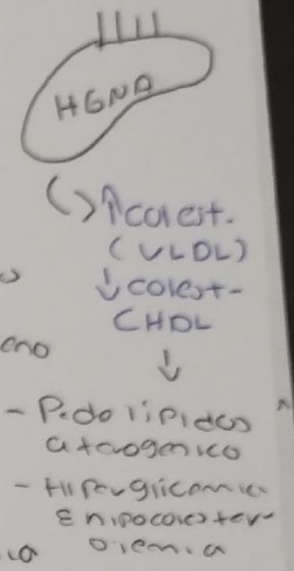 HGNA
↑colest.
(VLDL)
↓colest-
CHDL
↓
- P.do lipidos
aterogenico
- Hiperglicemia
E hipocolester-
olemia
eno